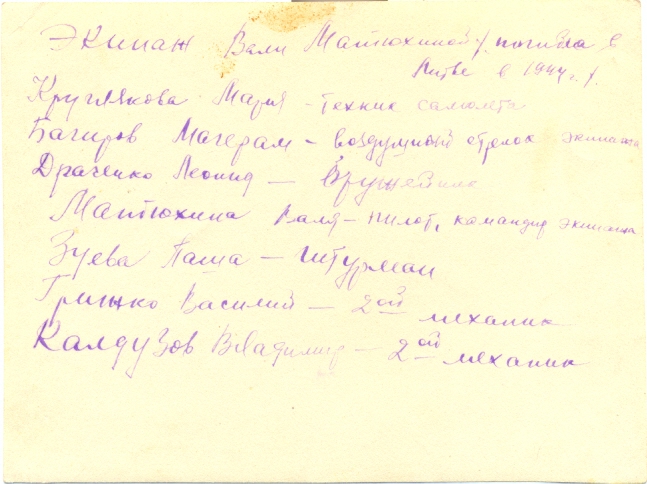 Экипаж Вали Матюхиной /погибла в
Литве в 1944 г./.
Круглякова Мария - техник самолета
Багиров Магерам - воздушный стрелок экипажа
Драченко Леонид - Оружейник
Матюхина Валя - пилот, командир экипажа
Зуева Паша - штурман
Грижко Василий - 2ой механик
Калдузов Владимир - 2ой механик